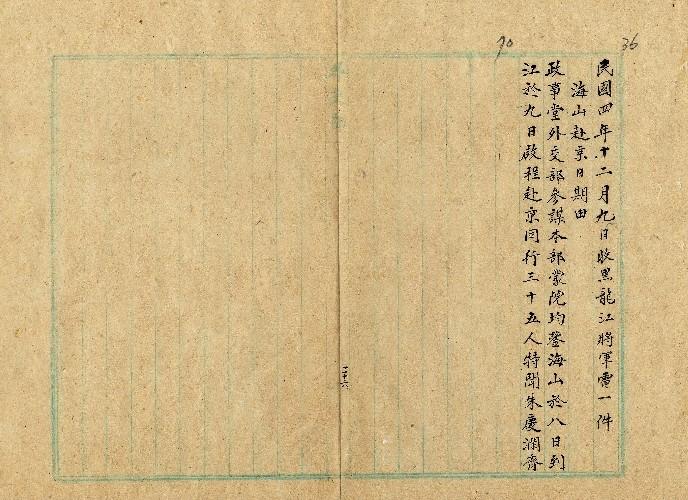 36
70
民國四年十二月九日收黑龍江將軍電一件
海山赴京日期由
政事堂外交部參謀本部蒙院均鑒海山於八日到
江於九日啟程赴京同行三十五人特聞朱慶瀾齊
三十六